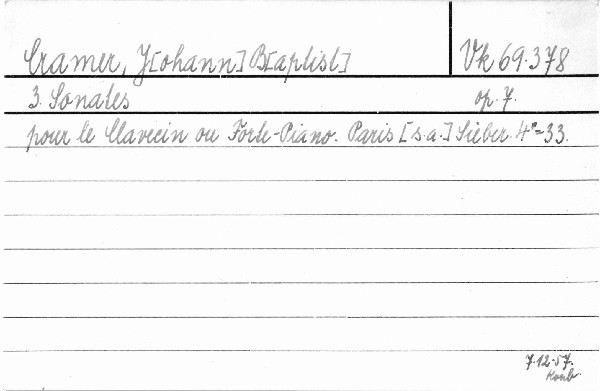 Cramer, J[ohann] B[aptist] Vk 69.378
3 Sonates op. 7.
pour le Clavecin ou Forte-Piano. Paris [s.a.] Sieber. 4°=33.
7.12.57.